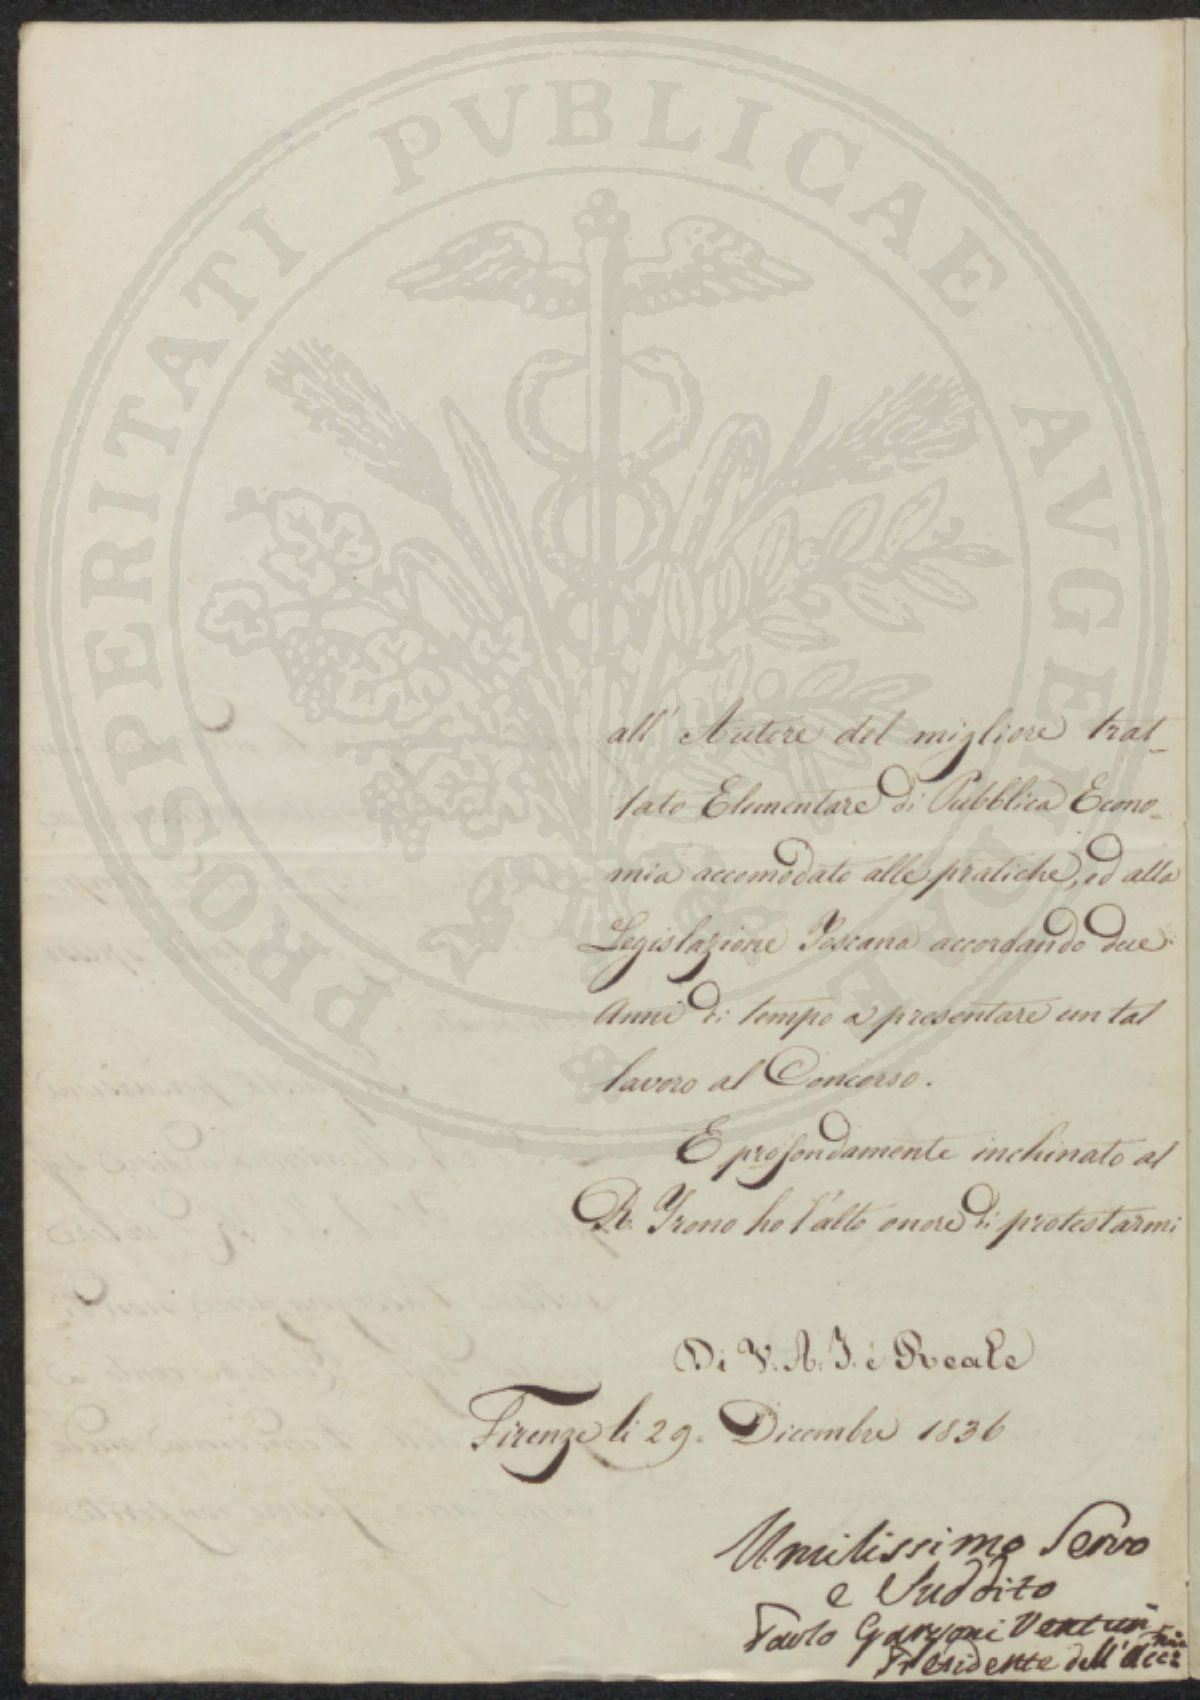 PROSPERITATI PVBLICAE AVGENDAE
all' Autore del migliore trat-
tato Elementare di Pubblica Econo-
mia accomodato alle pratiche, ed alla
Legislazione Toscana accordando due
Anni di tempo a presentare un tal
lavoro al Concorso.
E profondamente inchinato al
R. Trono ho l'alto onore di protestarmi
Di V. A. I. e Reale
Firenze li 29. Dicembre 1836
Umilissimo Servo
e Suddito
Paolo Garzoni Venturi
Presidente dell'Accᵐⁱᵃ